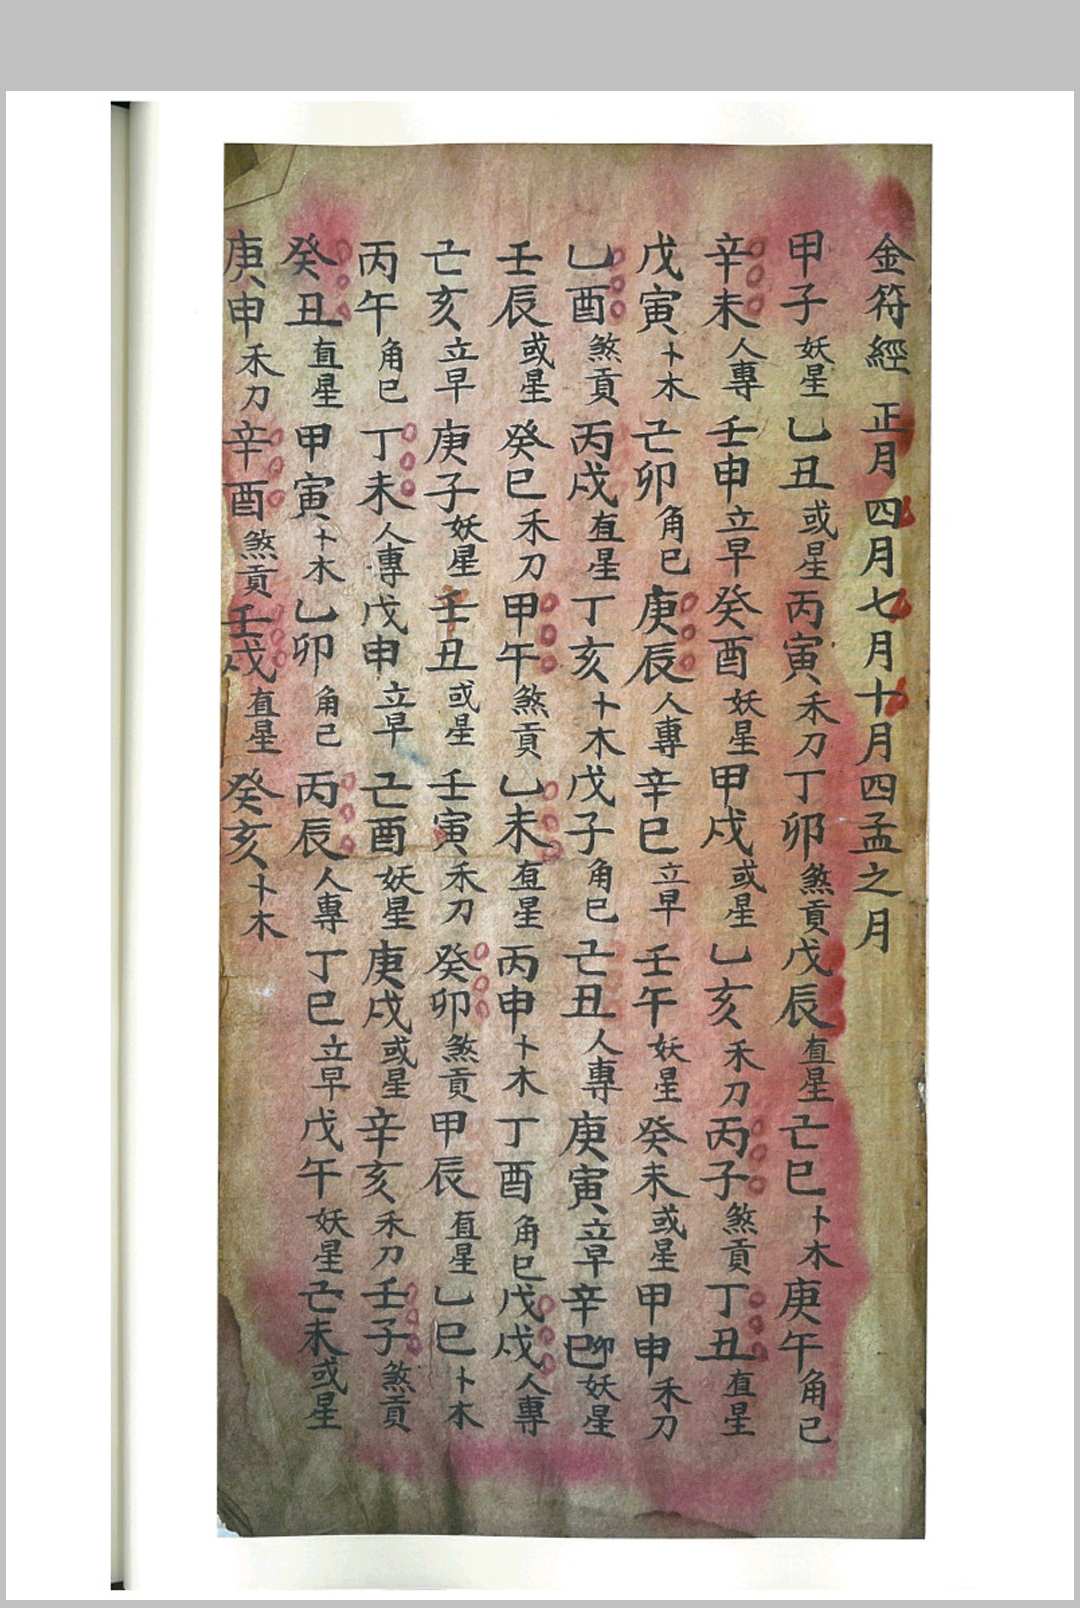 金符經 正月四月七月十月四孟之月
甲子妖星乙丑或星丙寅禾刀丁卯煞貢戊辰直星己巳卜木庚午角巳
辛未人專壬申立早癸酉妖星甲戌或星乙亥禾刀丙子煞貢丁丑直星
戊寅卜木己卯角巳庚辰人專辛巳立早壬午妖星癸未或星甲申禾刀
乙酉煞貢丙戌直星丁亥卜木戊子角巳己丑人專庚寅立早辛巳卯妖星
壬辰或星癸巳禾刀甲午煞貢乙未直星丙申卜木丁酉角巳戊戌人專
己亥立早庚子妖星壬丑或星壬寅禾刀癸卯煞貢甲辰直星乙巳卜木
丙午角巳丁未人專戊申立早己酉妖星庚戌或星辛亥禾刀壬子煞貢
癸丑直星甲寅卜木乙卯角巳丙辰人專丁巳立早戊午妖星己未或星
庚申禾刀辛酉煞貢壬戌直星癸亥卜木